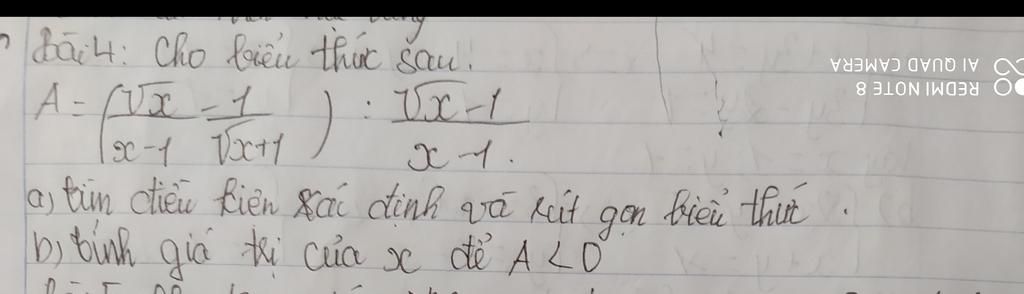 Bài 4: Cho biểu thức sau:
A = (√x/(x-1) - 1/(√x+1)) : (√x-1)/(x-1).
a) tìm điều kiện xác định và rút gọn biểu thức.
b) tính giá trị của x để A < 0
REDMI NOTE 8
AI QUAD CAMERA